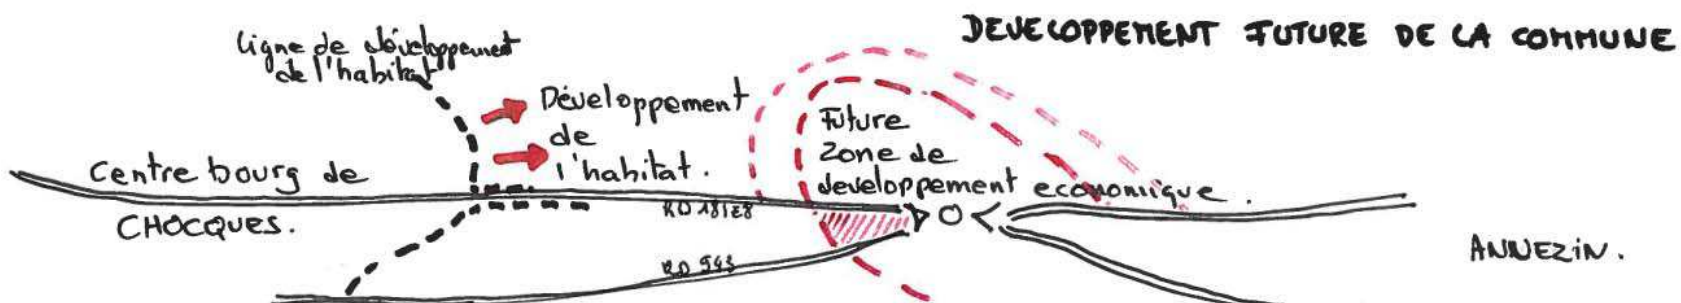 DEVELOPPEMENT FUTURE DE LA COMMUNE
ligne de développement
de l'habitat
Développement
de
l'habitat.
Future
zone de
developpement economique.
Centre bourg de
CHOCQUES.
RD 181E8
RD 943
ANNEZIN.